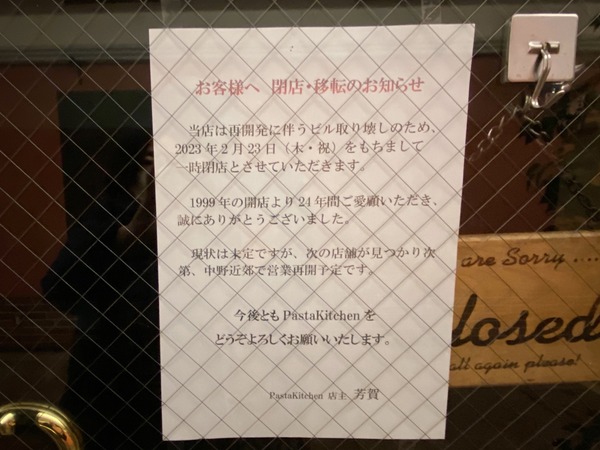 お客様へ 閉店・移転のお知らせ
当店は再開発に伴うビル取り壊しのため、
2023年2月23日（木・祝）をもちまして
一時閉店とさせていただきます。
1999年の開店より24年間ご愛顧いただき、
誠にありがとうございました。
現状は未定ですが、次の店舗が見つかり次
第、中野近郊で営業再開予定です。
今後ともPastaKitchenを
どうぞよろしくお願いいたします。
PastaKitchen 店主 芳賀
are Sorry ....
losed
all again please!